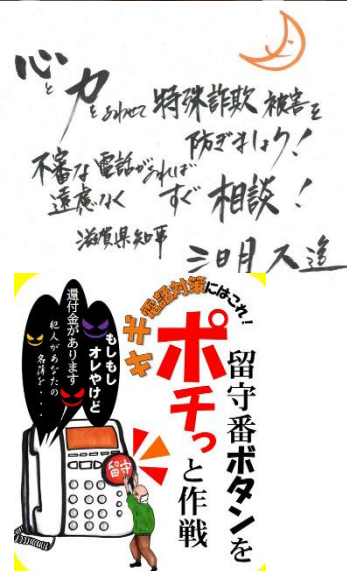 心と力をあわせて特殊詐欺被害を
防ぎましょう！
不審な電話があれば
遠慮なく すぐ相談！
滋賀県知事
三日月大造
電話対策にはこれ！
サギ
留守番ボタンを
ポチっと作戦
もしもし
オレやけど
還付金があります
犯人があなたの
名簿を・・・
留守